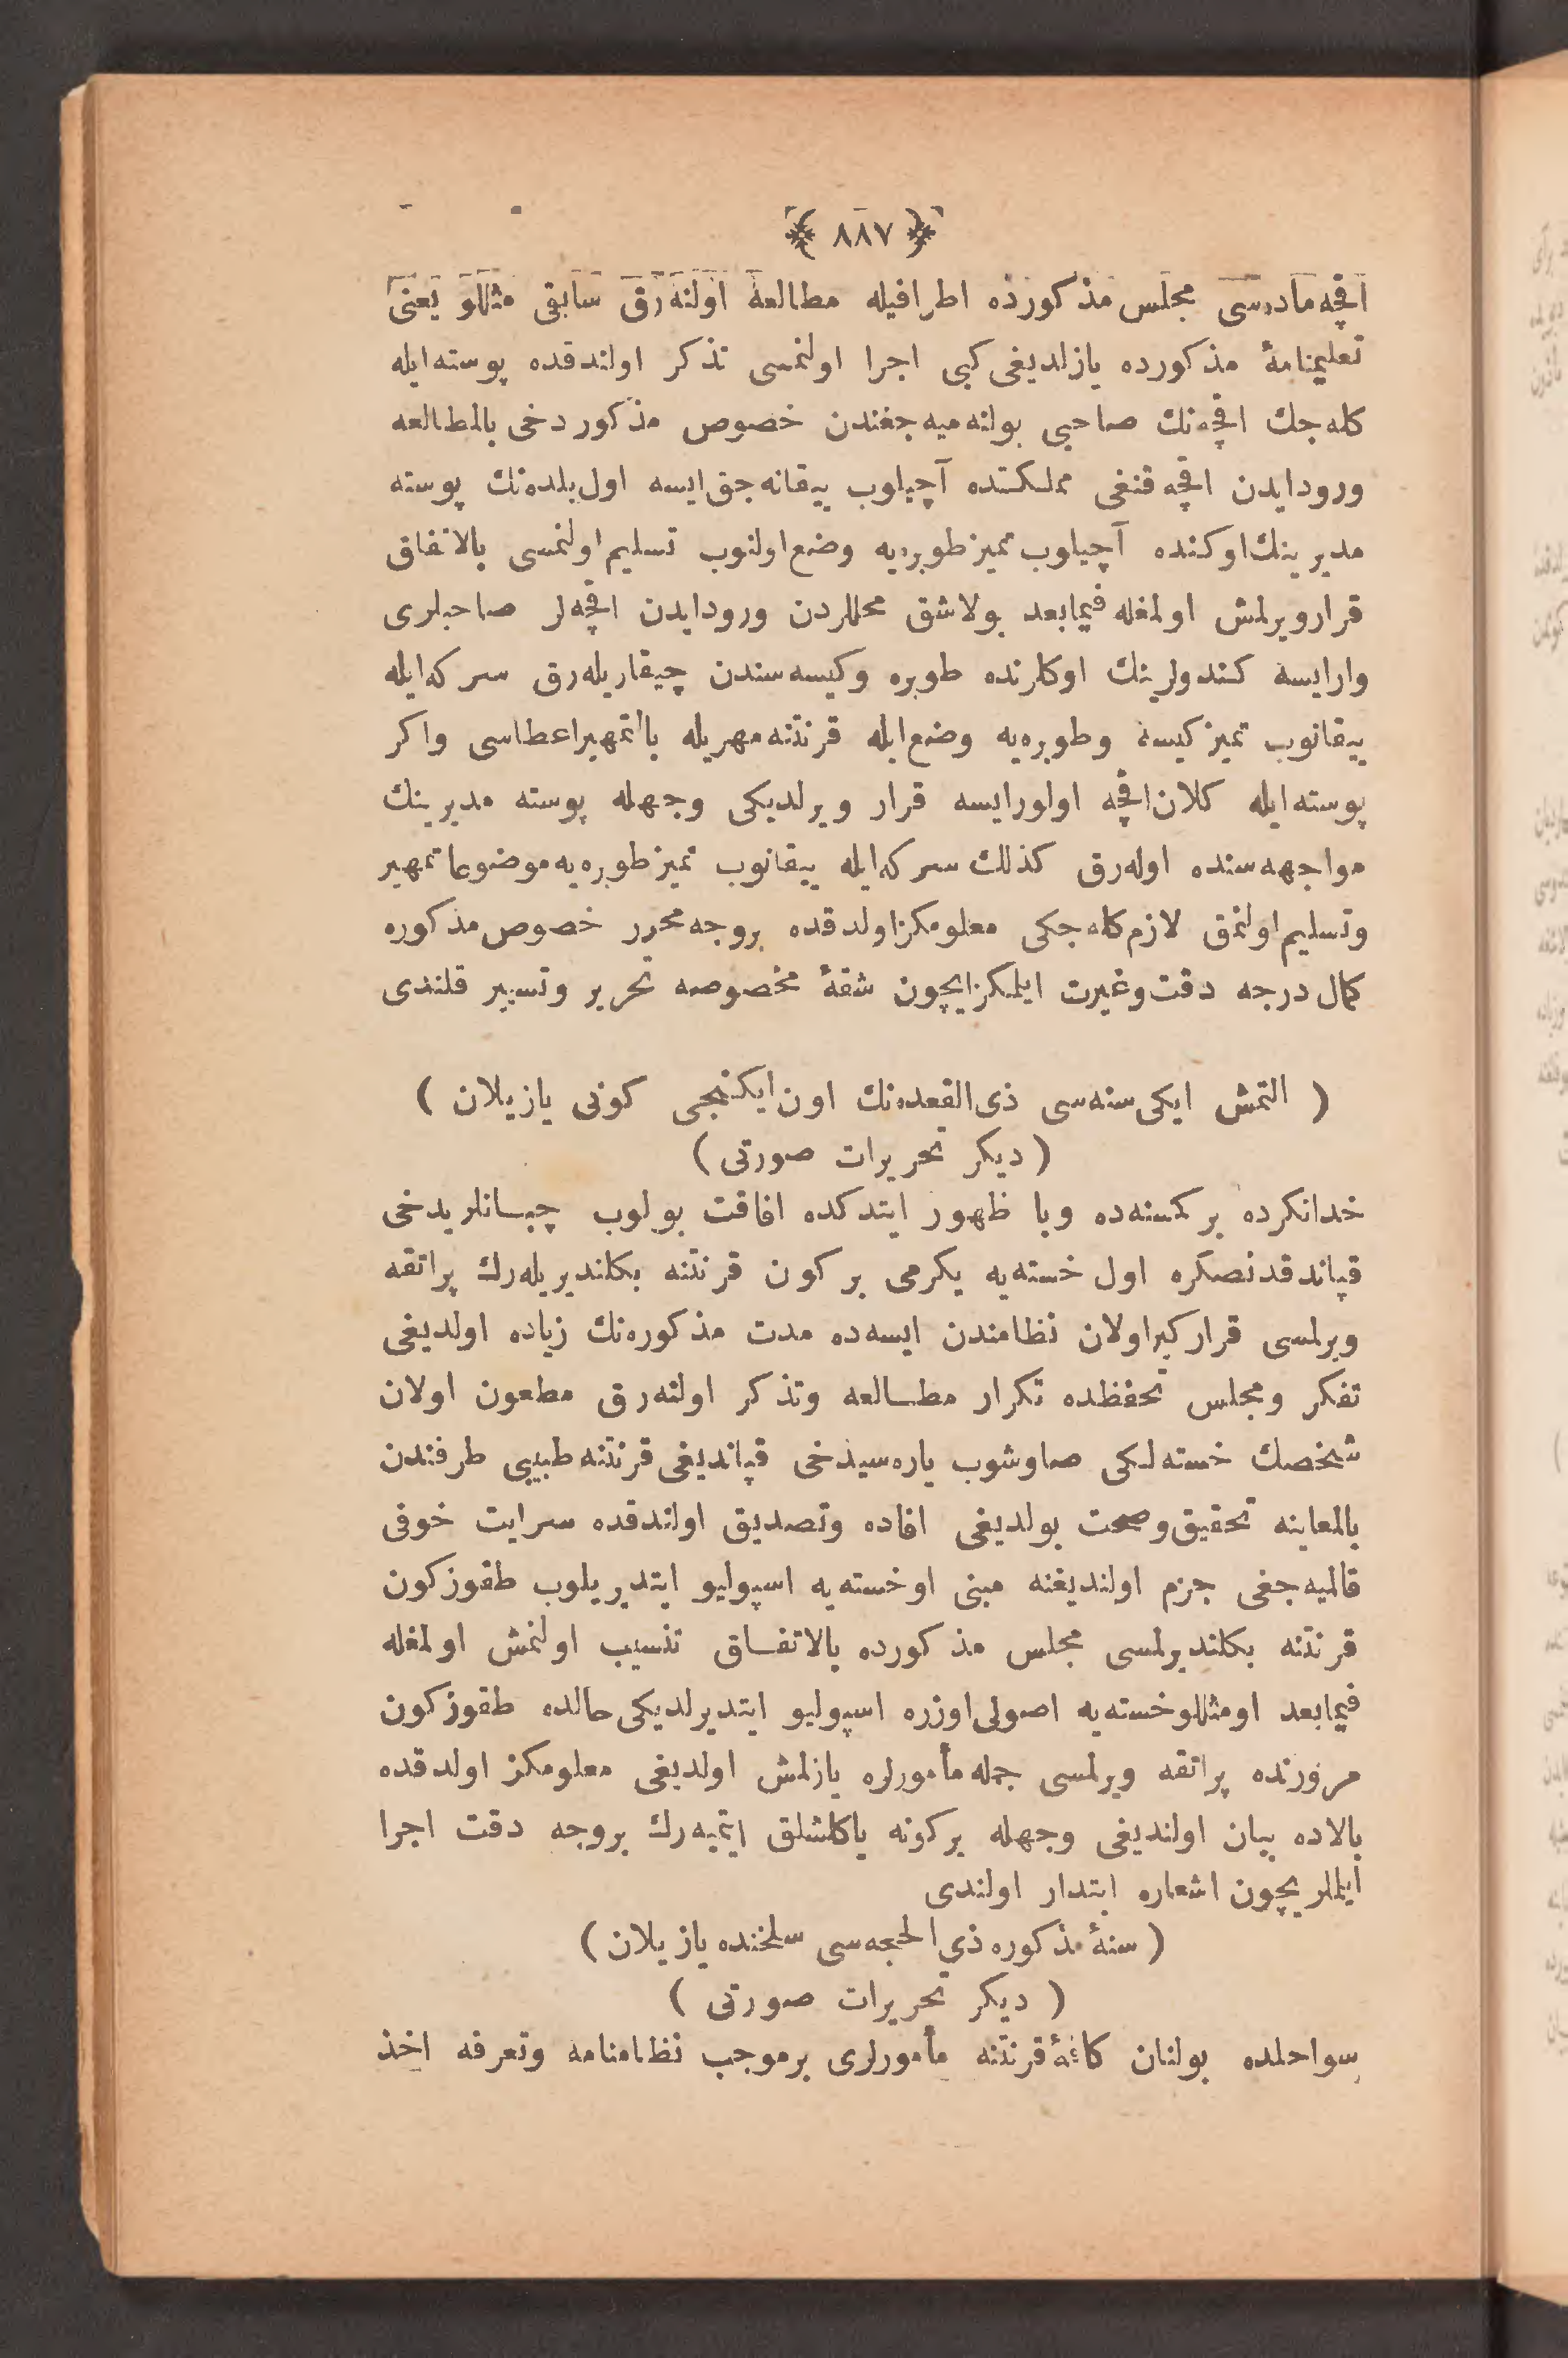 ﴿ ٨٨٧ ﴾
اقچه ماده‌سی مجلس مذكورده اطرافيله مطالعهٔ اولنه‌رق سابقی مثللو يعنی
تعليمنامهٔ مذكورده يازلديغی كبی اجرا اولنمسی تذكر اولندقده پوسته ايله
كله‌جك اقچه‌نك صاحبی بولنه‌ميه‌جغندن خصوص مذكور دخی بالمطالعه
ورود ايدن اقچه قنغی مملكتده آچيلوب ييقانه‌جق ايسه اول بلده‌نك پوسته
مديرينك اوكنده آچيلوب تميز طوبره‌يه وضع اولنوب تسليم اولنمسی بالاتفاق
قرار ويرلمش اولمغله فيمابعد بولاشق محللردن ورود ايدن اقچه‌لر صاحبلری
وار ايسه كندولرينك اوكلرنده طوبره وكيسه‌سندن چيقاريله‌رق سركه ايله
ييقانوب تميز كيسه وطوبره‌يه وضع ايله قرنتنه مهريله بالتمهير اعطاسی واكر
پوسته ايله كلان اقچه اولور ايسه قرار ويرلديكی وجهله پوسته مديرينك
مواجهه‌سنده اوله‌رق كذلك سركه ايله ييقانوب تميز طوبره‌يه موضوعا تمهير
وتسليم اولنمق لازم كله‌جكی معلومكز اولدقده بروجه محرر خصوص مذكوره
كمال درجه دقت وغيرت ايلمكز ايچون شقهٔ مخصوصه تحرير وتسيير قلندی
( التمش ايكی سنه‌سی ذی القعده‌نك اون ايكنجی كونی يازيلان )
( ديكر تحريرات صورتی )
خدانكرده بر كمسنه‌ده وبا ظهور ايتدكده افاقت بولوب چبانلريدخی
قپاندقدنصكره اول خسته‌يه يكرمی بر كون قرنتنه بكلنديريله‌رك پراتقه
ويرلمسی قراركير اولان نظامندن ايسه‌ده مدت مذكوره‌نك زياده اولديغی
تفكر ومجلس تحفظده تكرار مطالعه وتذكر اولنه‌رق مطعون اولان
شخصك خسته‌لكی صاوشوب ياره‌سيدخی قپانديغی قرنتنه طبيبی طرفندن
بالمعاينه تحقيق وصحت بولديغی افاده وتصديق اولندقده سرايت خوفی
قالميه‌جغی جزم اولنديغنه مبنی او خسته‌يه اسپوليو ايتديريلوب طقوز كون
قرنتنه بكلنديرلمسی مجلس مذكورده بالاتفاق تنسيب اولنمش اولمغله
فيمابعد اومثللو خسته‌يه اصولی اوزره اسپوليو ايتديرلديكی حالده طقوز كون
مرورنده پراتقه ويرلمسی جمله مأمورلره يازلمش اولديغی معلومكز اولدقده
بالاده بيان اولنديغی وجهله بركونه ياكلشلق ايتميه‌رك بروجه دقت اجرا
ايلملريچون اشعاره ابتدار اولندی
( سنهٔ مذكوره ذي الحجه‌سی سلخنده يازيلان )
( ديكر تحريرات صورتی )
سواحلده بولنان كافهٔ قرنتنه مأمورلری برموجب نظامنامه وتعرفه اخذ